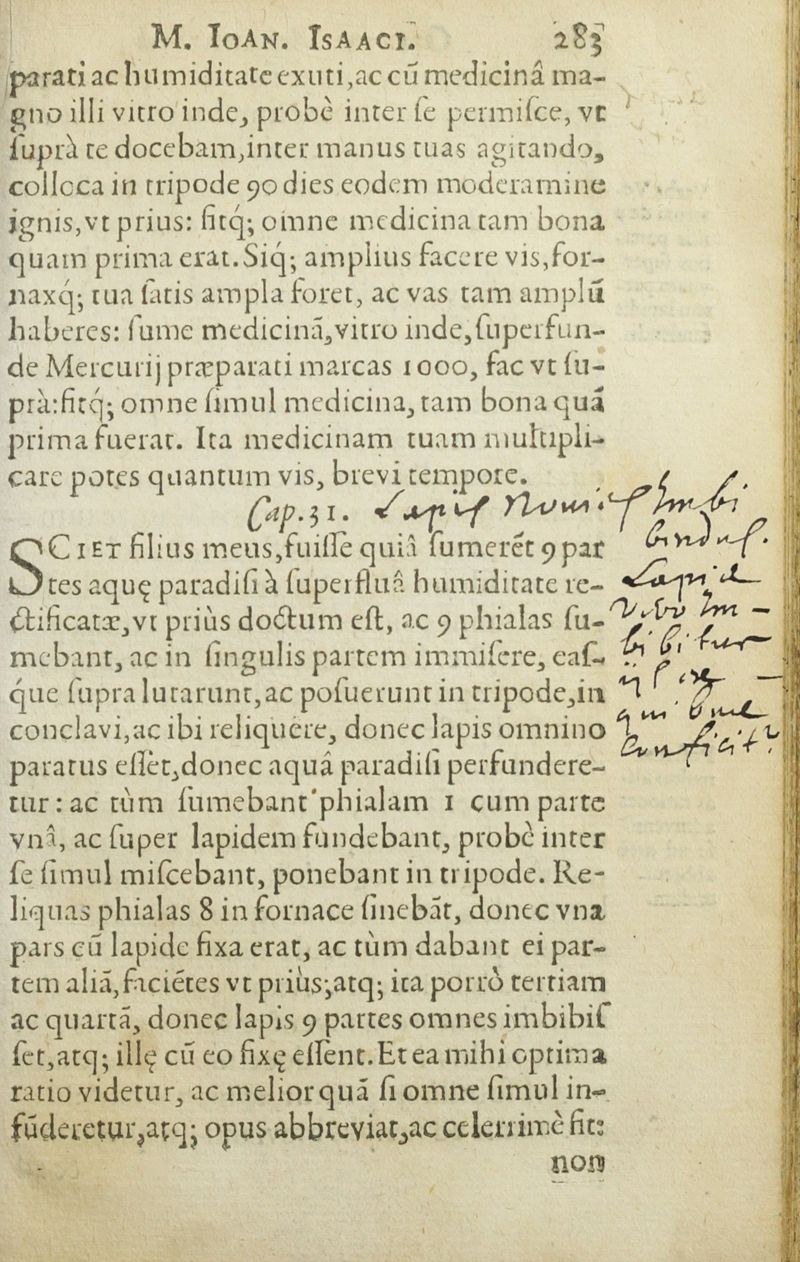 M. IoAN. IsAACI. 283
parati ac humiditate exuti, ac cū medicinâ ma-
gno illi vitro inde, probè inter ſe permiſce, vt
ſuprà te docebam, inter manus tuas agitando,
colloca in tripode 90 dies eodem moderamine
ignis, vt prius: fitq́; omne medicina tam bona
quam prima erat. Siq́; amplius facere vis, for-
naxq́; tua ſatis ampla foret, ac vas tam amplū
haberes: ſume medicinā, vitro inde, ſuperfun-
de Mercurij præparati marcas 1000, fac vt ſu-
prà: fitq́; omne ſimul medicina, tam bona quā
prima fuerat. Ita medicinam tuam multipli-
care potes quantum vis, brevi tempore.
Cap. 31. Lapis
SCIET filius meus, fuiſſe quiâ ſumerēt 9 par
tes aquę paradiſi à ſuperfluâ humiditate re-
ctificatæ, vt priùs doctum eſt, ac 9 phialas ſu-
mebant, ac in ſingulis partem immiſcre, eaſ-
que ſupra lutarunt, ac poſuerunt in tripode, in
conclavi, ac ibi reliquêre, donec lapis omnino
paratus eſſet, donec aquâ paradiſi perfundere-
tur: ac tùm ſumebant phialam 1 cum parte
vnâ, ac ſuper lapidem fundebant, probè inter
ſe ſimul miſcebant, ponebant in tripode. Re-
liquas phialas 8 in fornace ſinebāt, donec vna
pars cū lapide fixa erat, ac tùm dabant ei par-
tem aliā, faciētes vt priùs; atq; ita porrò tertiam
ac quartā, donec lapis 9 partes omnes imbibiſ
ſet, atq; illę cū eo fixę eſſent. Et ea mihi optima
ratio videtur, ac melior quā ſi omne ſimul in-
fūderetur, atq; opus abbreviat, ac celerrimè fit:
non